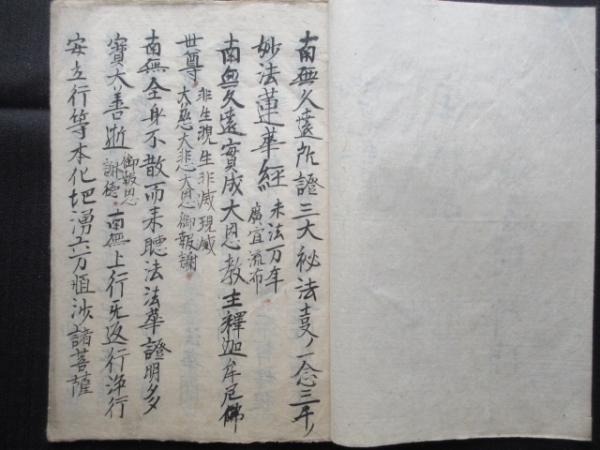 南無久遠所證三大秘法事ノ一念三千ノ
妙法蓮華經 末法万年
廣宣流布
南無久遠實成大恩教主釋迦牟尼佛
非生現生非滅現滅
世尊 大慈大悲大恩御報謝
南無全身不散而来聴法法華證明多
寳大善逝 御報恩
謝徳 南無上行无辺行浄行
安立行等本化地湧六万恒沙諸菩薩